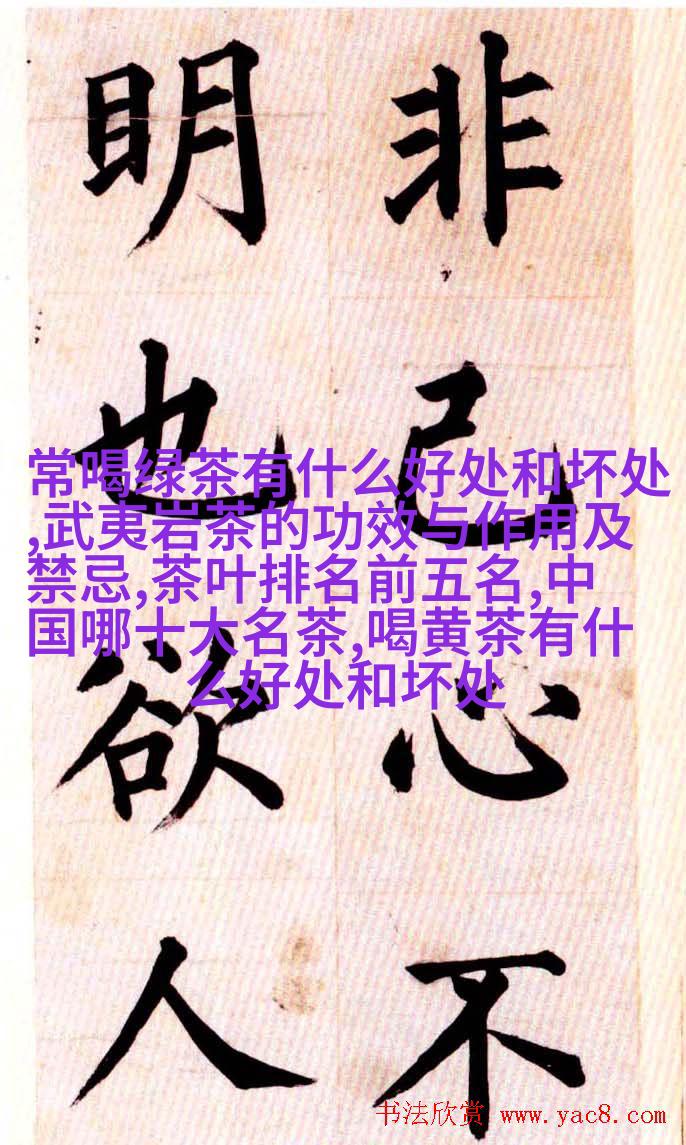 非己心不
明也欲人
常喝绿茶有什么好处和坏处
,武夷岩茶的功效与作用及
禁忌,茶叶排名前五名,中
国哪十大名茶,喝黄茶有什
么好处和坏处
书法欣赏 www.yac8.com